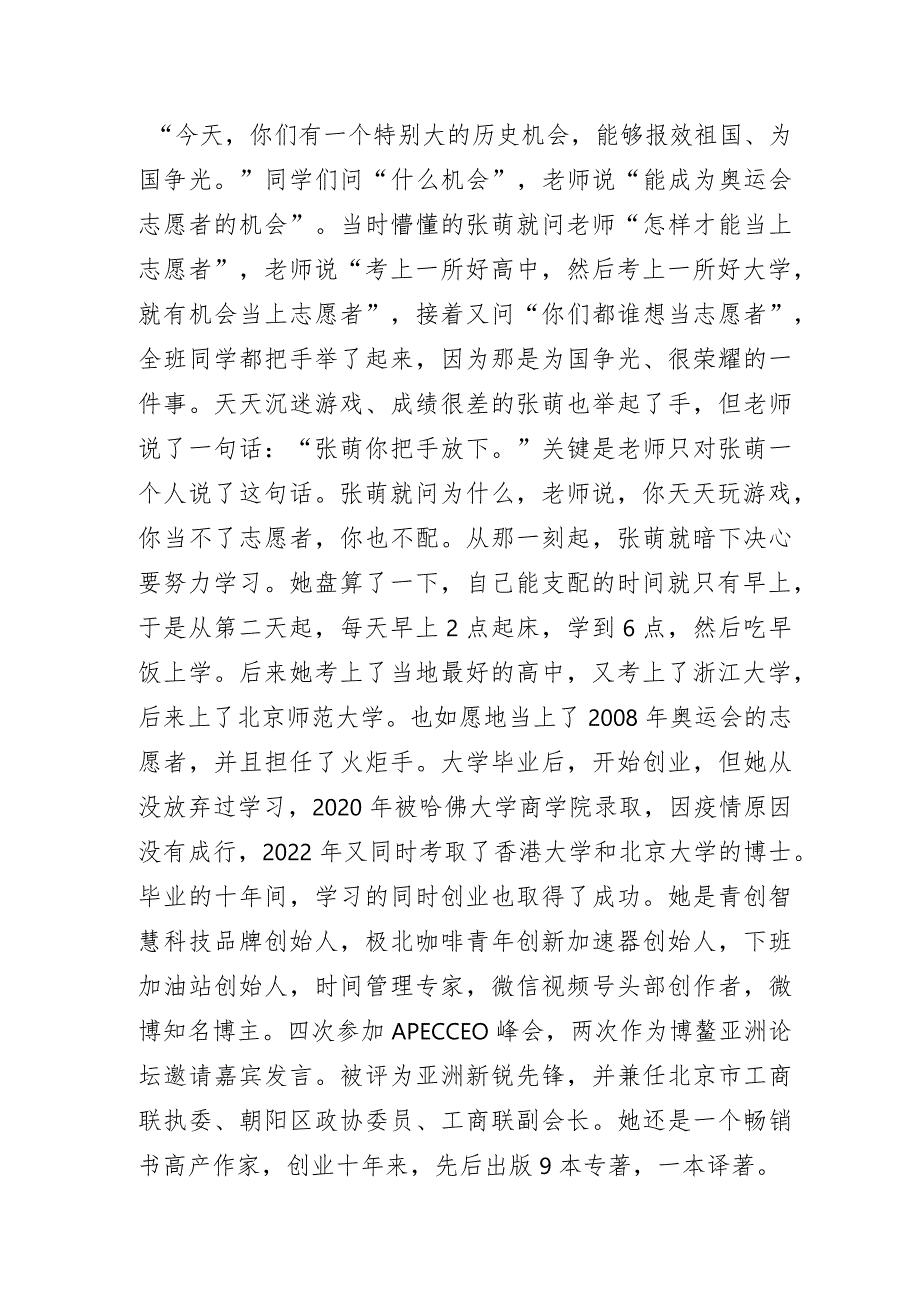 “今天，你们有一个特别大的历史机会，能够报效祖国、为
国争光。”同学们问“什么机会”，老师说“能成为奥运会
志愿者的机会”。当时懵懂的张萌就问老师“怎样才能当上
志愿者”，老师说“考上一所好高中，然后考上一所好大学，
就有机会当上志愿者”，接着又问“你们都谁想当志愿者”，
全班同学都把手举了起来，因为那是为国争光、很荣耀的一
件事。天天沉迷游戏、成绩很差的张萌也举起了手，但老师
说了一句话：“张萌你把手放下。”关键是老师只对张萌一
个人说了这句话。张萌就问为什么，老师说，你天天玩游戏，
你当不了志愿者，你也不配。从那一刻起，张萌就暗下决心
要努力学习。她盘算了一下，自己能支配的时间就只有早上，
于是从第二天起，每天早上2点起床，学到6点，然后吃早
饭上学。后来她考上了当地最好的高中，又考上了浙江大学，
后来上了北京师范大学。也如愿地当上了2008年奥运会的志
愿者，并且担任了火炬手。大学毕业后，开始创业，但她从
没放弃过学习，2020年被哈佛大学商学院录取，因疫情原因
没有成行，2022年又同时考取了香港大学和北京大学的博士。
毕业的十年间，学习的同时创业也取得了成功。她是青创智
慧科技品牌创始人，极北咖啡青年创新加速器创始人，下班
加油站创始人，时间管理专家，微信视频号头部创作者，微
博知名博主。四次参加APECCEO峰会，两次作为博鳌亚洲论
坛邀请嘉宾发言。被评为亚洲新锐先锋，并兼任北京市工商
联执委、朝阳区政协委员、工商联副会长。她还是一个畅销
书高产作家，创业十年来，先后出版9本专著，一本译著。